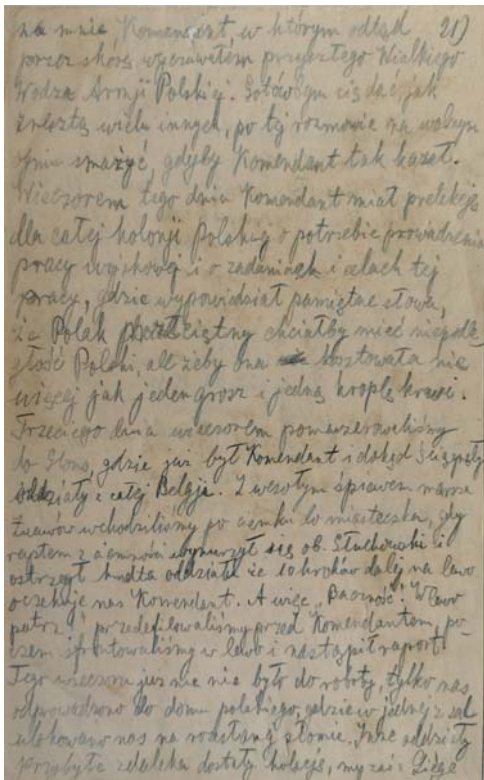 na mnie Komendant, w którym odtąd 21)
przez skórę wyczuwałem przyszłego Wielkiego
Wodza Armji Polskiej. Gotów bym się dać, jak
zresztą wielu innych, po tej rozmowie na wolnym
ogniu smażyć, gdyby Komendant tak kazał.
Wieczorem tego dnia Komendant miał prelekcję
dla całej kolonji Polskiej o potrzebie prowadzenia
pracy wojskowej i o zadaniach i celach tej
pracy, gdzie wypowiedział pamiętne słowa,
że Polak przeciętny chciałby mieć niepodle-
głość Polski, ale żeby ona kosztowała nie
więcej jak jeden grosz i jedną kroplę krwi.
Trzeciego dnia wieczorem pomaszerowaliśmy
do, gdzie już był Komendant i dokąd ściągnęły
oddziały z całej Belgji. Z wesołym śpiewem marsza
żuawów wchodziliśmy po ciemku do miasteczka, gdy
raptem z ciemności wynurzył się ob. Stachowski i
ostrzegł oddziału że 10 kroków dalej na lewo
oczekuje nas Komendant. A więc „Baczność! W lewo
patrz!" i przedefilowaliśmy przed Komendantem, po-
czem sfrontowaliśmy w lewo i nastąpił raport.
Tego wieczoru już nic nie było do roboty, tylko nas
odprowadzono do domu polskiego, gdzie w jednej z sal
ulokowano nas na rozesłanej słomie. Inne oddziały
przybyłe zdaleka dostały kolację, my zaś z Liège